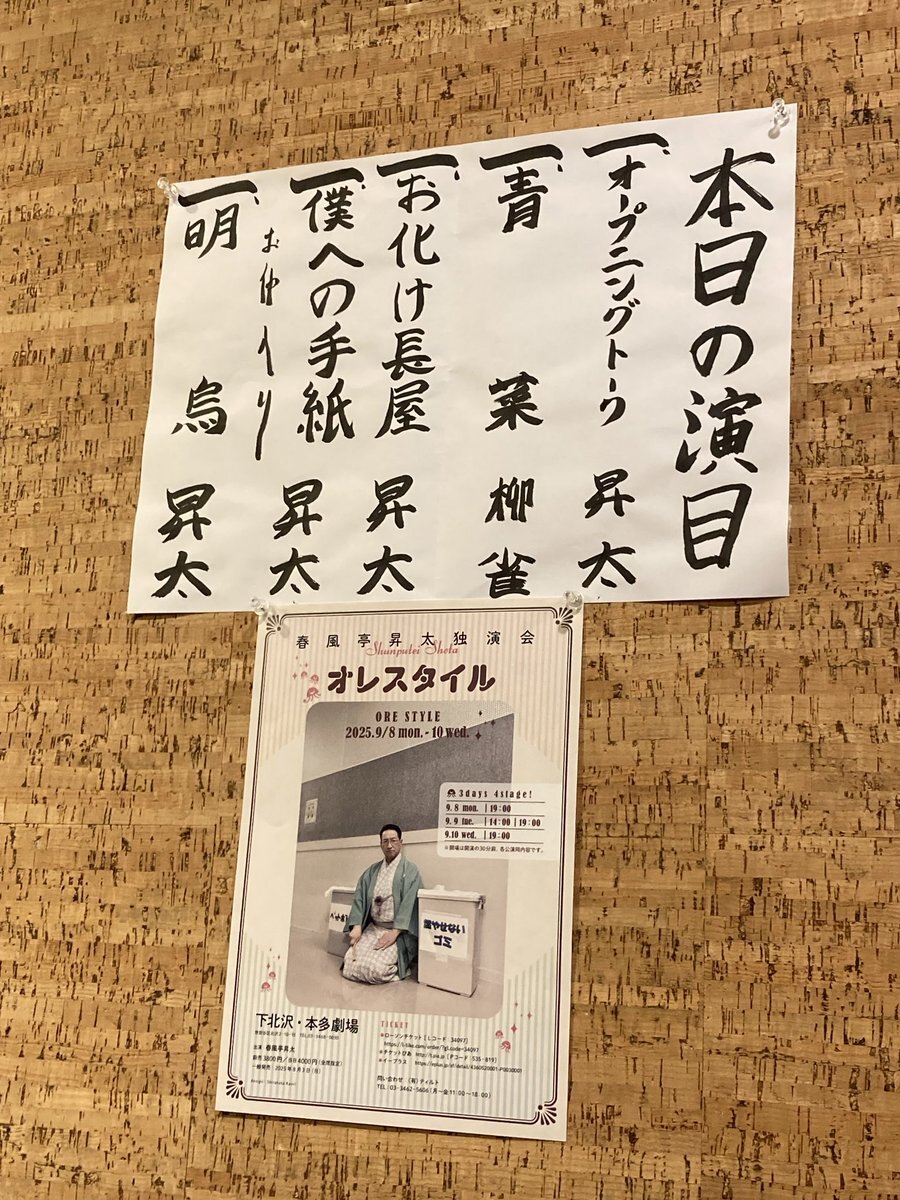 本日の演目
一、オープニングトーク 昇太
一、青菜 柳雀
一、お化け長屋 昇太
一、僕への手紙 昇太
お仲入り
一、明烏 昇太
春風亭昇太独演会
Shunputei Shota
オレスタイル
ORE STYLE
2025.9/8 mon. - 10 wed.
3days 4stage!
9. 8 mon. | 19:00
9. 9 tue. | 14:00 | 19:00
9.10 wed. | 19:00
※開場は開演の30分前、各公演同内容です。
燃やせない
ゴミ
下北沢・本多劇場
出演 春風亭昇太
前売3800円/当日4000円(全席指定)
一般発売 2025年8月3日(日)
TICKET
※ローソンチケット [Lコード 34097]
※チケットぴあ http://t.pia.jp [Pコード 535-819]
※イープラス
問い合わせ (有)ティルト
TEL:03-3462-5606(月〜金11:00〜18:00)